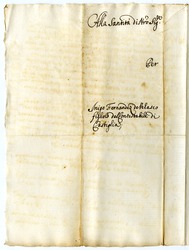 Alla Santità di N'ro Sig.re
Per
Inigo Fernandez de Velasco
figliolo del Contestabile di
Castiglia